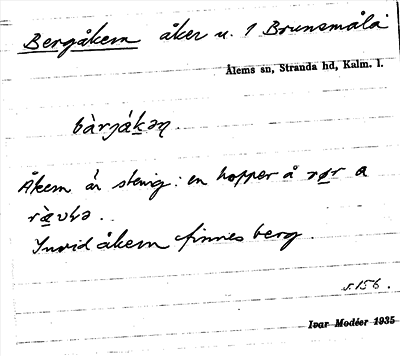 Bergåkern åker u. 1 Brunsmåla
Ålems sn, Stranda hd, Kalm. l.
bàrjákən
Åkern är stenig: en hopper å rør a
Invid åkern finnes berg.
s 156.
Ivar Modéer 1935